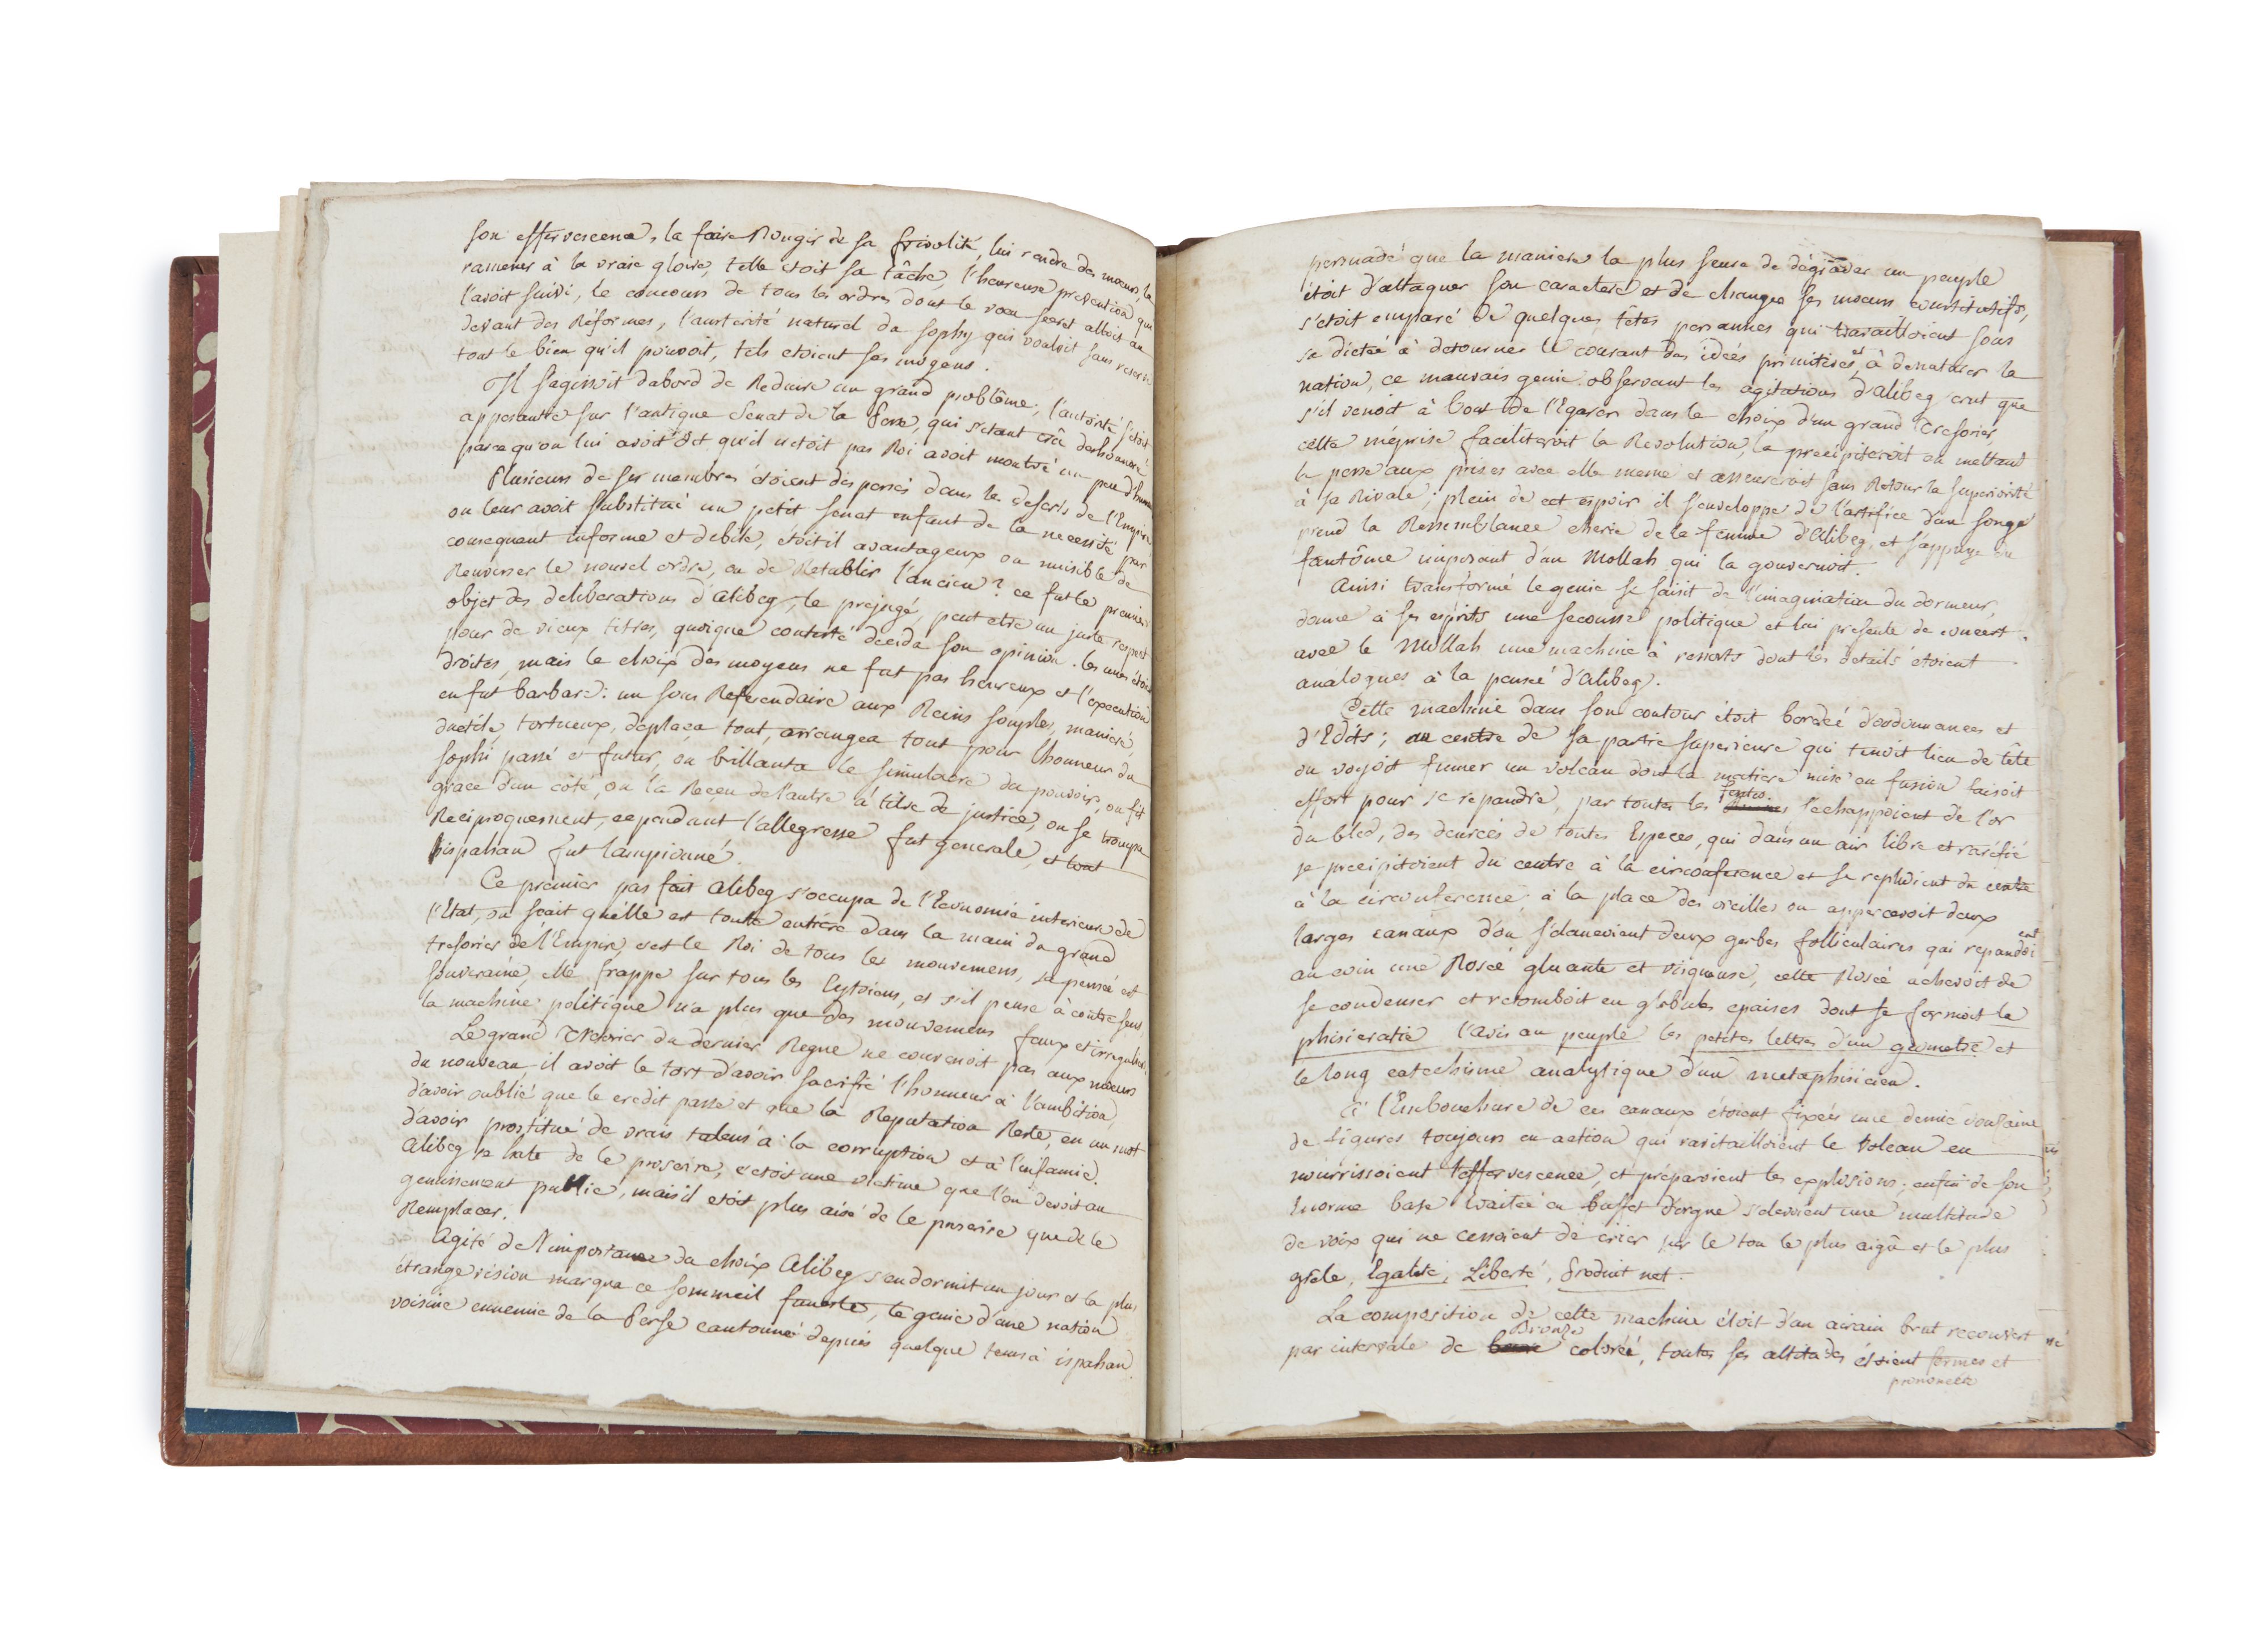 son effervescence, la faire Rougir de sa frivolité, lui rendre des moeurs, la
ramener à la vraie gloire, telle étoit sa tâche, l'heureuse prevention qui
l'avoit suivi, le concours de tous les ordres dont le voeu secret alloit au
devant des Réformes, l'austerité naturel du sophy qui vouloit sans reserve
tout le bien qu'il pouvoit, tels etoient ses moyens.
Il s'agissoit d'abord de Reduire un grand problême; l'autorité s'étoit
appesantie sur l'antique Senat de la Perse, qui s'etant crû deshonnoré
parce qu'on lui avoit dit qu'il n'etoit pas Roi avoit montré un peu d'humeur
Plusieurs de ses membres étoient dispersés dans les deserts de l'Empire,
on leur avoit substitué un petit senat enfant de la necessité par
consequent informe et debile, étoit il avantageux ou nuisible de
Renverser le nouvel ordre, ou de Retablir l'ancien? ce fut le premier
objet des deliberations d'alibeg, le prejugé, peut etre un juste respect
pour de vieux titres, quoique contesté decida son opinion. les vues étoient
droites, mais le choix des moyens ne fut pas heureux et l'execution
en fut barbare: un sous Referendaire aux Reins souples, manieré,
ductile, tortueux, déplaça tout, arrangea tout pour l'honneur du
sophi passé et futur, on brillanta le simulacre du pouvoir, on fit
grace d'un côté, on la Reçeu de l'autre à titre de justice, on se trompa
Reciproquement, cependant l'allegresse fut generale, et tout
hispahan fut lampionné.
Ce premier pas fait alibeg s'occupa de l'Economie interieure de
l'Etat, on sçait qu'elle est toute entiére dans la main du grand
tresorier de l'Empire, c'est le Roi de tous les mouvemens, sa pensée est
souveraine, elle frappe sur tous les Cytoiens, et s'il pense à contre sens
la machine politique n'a plus que des mouvemens faux et irreguliers
Le grand tresorier du dernier Regne ne convenoit pas aux moeurs
du nouveau, il avoit le tort d'avoir sacrifié l'honneur à l'ambition,
d'avoir oublié que le credit passe et que la Reputation Reste, en un mot
d'avoir prostitué de vrais talens à la corruption et à l'infamie.
alibeg se hate de le proscrire, c'etoit une victime que l'on devoit au
gemissement public, mais il etoit plus aisé de le proscrire que de le
Remplacer.
Agité de l'importance du choix Alibeg s'endormit un jour et la plus
étrange vision marqua ce sommeil funeste, le genie d'une nation
voisine ennemie de la Perse cantonné depuis quelque tems à ispahan
persuadé que la maniere la plus seure de dégrader un peuple
étoit d'attaquer son caractere et de changer ses moeurs constitutifs,
s'etoit emparé de quelques têtes persannes qui travailloient sous
sa dictée à detourner le courant des idées primitives et à denaturer la
nation, ce mauvais genie observant les agitations d'alibeg crut que
s'il venoit à bout de l'Egarer dans le choix d'un grand tresorier,
cette méprise faciliteroit la Revolution, la precipiteroit en mettant
la perse aux prises avec elle meme et asseureroit sans Retour la superiorité
à sa Rivale; plein de cet espoir il s'enveloppe de l'artifice d'un songe
prend la Ressemblance cherie de la femme d'alibeg, et s'appuye du
fantôme imposant d'un Mollah qui la gouvernoit.
Ainsi transformé le genie se saisit de l'imagination du dormeur,
donne à ses esprits une secousse politique et lui presente de concert
avec le Mollah une machine à ressorts dont les details étoient
analogues à la pensée d'alibeg.
Cette machine dans son contour étoit bordée d'ordonnances et
d'Edits; au centre de sa partie superieure qui tenoit lieu de tête
on voyoit fumer un volcan dont la matiere mise en fusion faisoit
effort pour se repandre, par toutes les fentes s'echappoient de l'or
du bled, des denrées de toutes Especes, qui dans un air libre et raréfié
se precipitoient du centre à la circonference et se replioient du centre
à la circonference; à la place des oreilles on appercevoit deux
larges canaux d'où s'elancoient deux gerbes folliculaires qui repandoient
au loin une Rosée gluante et visqueuse, cette Rosée achevoit de
se condenser et retomboit en globules epaises dont se formoit la
phisicratie l'avis au peuple les petites lettres d'un geometre et
le long catechisme analytique d'un metaphisicien.
à l'Embouchure de ces canaux étoient fixées une demie douzaine
de figures toujours en action qui ravitailloient le volcan en
nourrissoient l'effervescence, et préparoient les explosions; enfin de son
Enorme base traitée en buffet d'orgue s'elevoient une multitude
de voix qui ne cessoient de crier sur le ton le plus aigû et le plus
grele, Egalité, Liberté, Produit net.
La composition de cette machine étoit d'un airain brut recouvert
par intervale de Bronze colorée, toutes ses attitudes étoient fermes et
prononcées